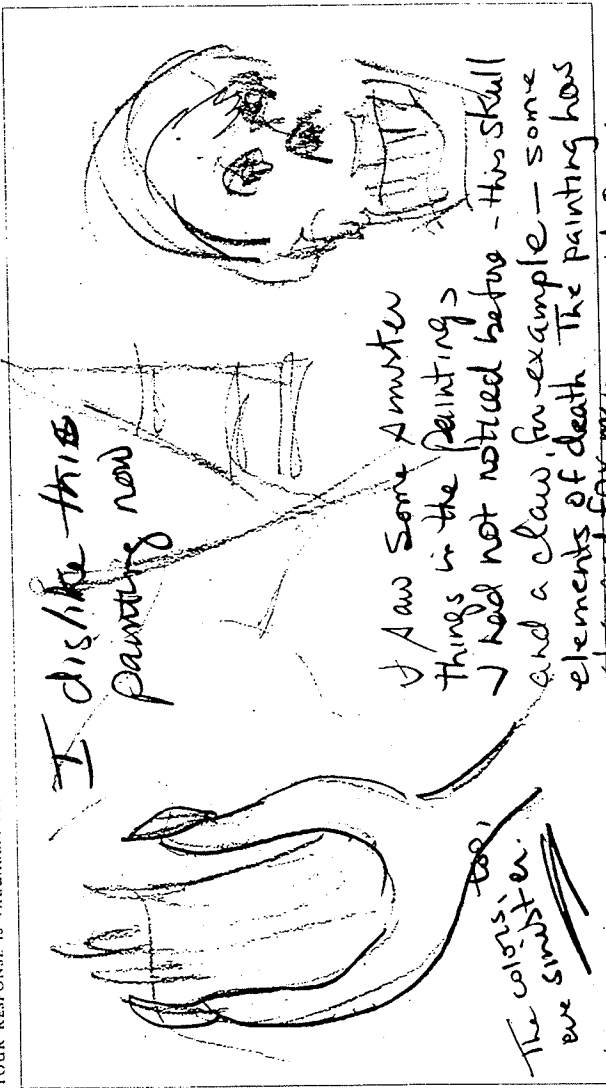 YOUR RESPONSE IS
I dislike this
painting now
I saw some sinister
things in the paintings
I had not noticed before - this skull
and a claw, for example - some
elements of death. The painting has
The colors, too,
are sinister.